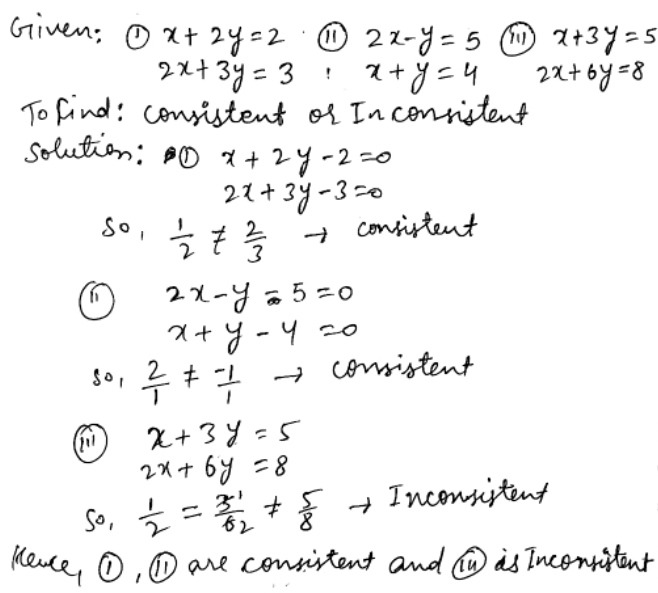 Given: (i) x+2y=2 (ii) 2x-y=5 (iii) x+3y=5
2x+3y=3 x+y=4 2x+6y=8
To find: consistent or Inconsistent
Solution: (i) x+2y-2=0
2x+3y-3=0
So, 1/2 ≠ 2/3 → consistent
(ii) 2x-y-5=0
x+y-4=0
So, 2/1 ≠ -1/1 → consistent
(iii) x+3y=5
2x+6y=8
So, 1/2 = 3 1/6 2 ≠ 5/8 → Inconsistent
Hence, (i), (ii) are consistent and (iii) is Inconsistent